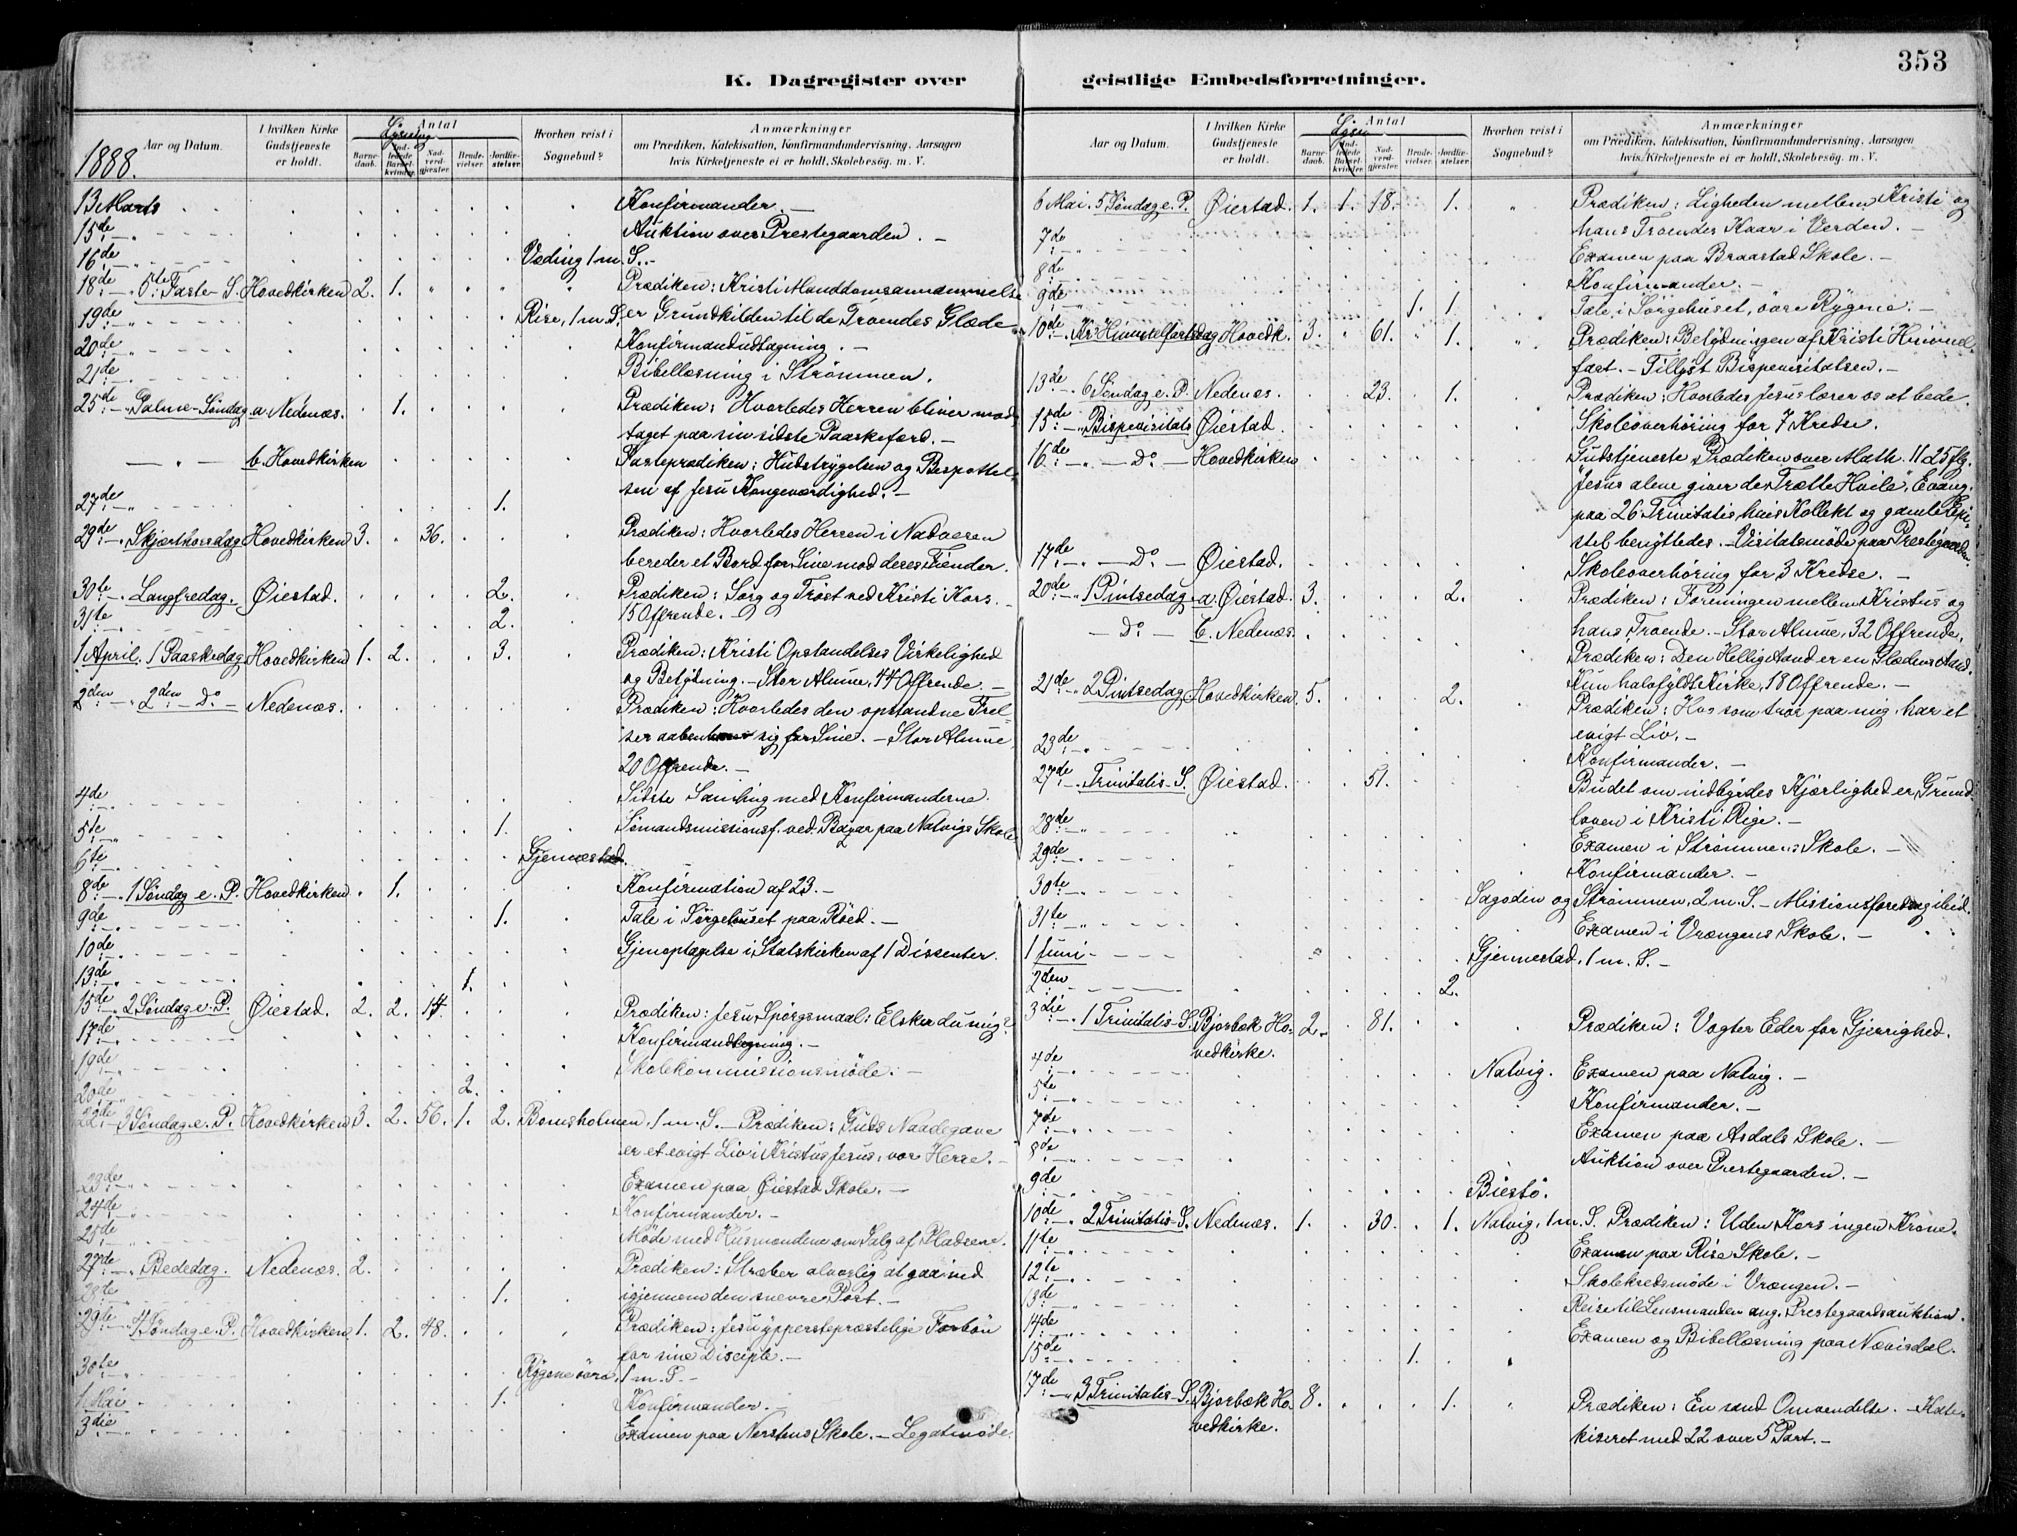 353
K. Dagregister over geistlige Embedsforretninger.
1888.
Aar og Datum.
I hvilken Kirke Gudstjeneste er holdt.
Antal
Barnedaab.
Indledede Barselkvinder.
Nadverdgjæster.
Brudevielser.
Jordfæstelser.
Hvorhen reist i Sognebud?
Anmærkninger
om Prædiken, Katekisation, Konfirmandundervisning. Aarsagen
hvis Kirketjeneste ei er holdt, Skolebesøg. m. V.
13 Marts Konfirmander. —
15de Auktion over Prestegaarden. —
16de Væding 1 m. S. —
18de 5te Faste S. Hovedkirken 2. 1. Prædiken: Kristi Manddomsannammelse
19de Rise, 1 m. S. er Grundkilden til de Troendes Glæde
20de Konfirmandudtagning. —
21de Bibellæsning i Strømmen.
25de Palme-Søndag a. Nedenæs. 1. Prædiken: Hvorledes Herren bliver mod-
taget paa sin sidste Paaskefærd. —
— " — b. Hovedkirken Fasteprædiken: Hudstrygelsen og Bespottel-
sen af Jesu Kongeværdighed. —
27de 1.
29de Skjærthorsdag Hovedkirken 3. 36. Prædiken: Hvorledes Herren i Nadveren
bereder et Bord for Sine mod deres Fiender.
30te Langfredag. Øiestad. 2. Prædiken: Sorg og Trøst ved Kristi Kors. —
31te 2. 15 Offrende. —
1 April. 1 Paaskedag Hovedkirken 1. 2. 3. Prædiken: Kristi Opstandelses Virkelighed
og Betydning. — Stor Almue, 44 Offrende. —
2den 2den Do — Nedenæs. Prædiken: Hvorledes den opstandne Frel-
ser aabenbarer sig for Sine. — Stor Almue,
20 Offrende. —
4de Sidste Samling med Konfirmanderne.
5te 1. Sømandsmissionsf. ved Bazar paa Natvigs Skole
6te Gjennestad.
8de 1 Søndag e. P. Hovedkirken 1. Konfirmation af 23. —
9de 1. Tale i Sørgehuset paa Røed. —
10de Gjenoptagelse i Statskirken af 1 Dissenter.
13de 1.
15de 2 Søndag e. P. Øiestad. 2. 2. 14. Prædiken: Jesu Spørgsmaal: Elsker du mig?
17de Konfirmandtegning. —
19de Skolekommissionsmøde. —
20de 2.
22de 3 Søndag e. P. Hovedkirken 3. 2. 56. 1. 2. Bomsholmen, 1 m. S. — Prædiken: Guds Naadegave
er et evigt Liv i Kristus Jesus, vor Herre. —
23de Examen paa Øiestad Skole. —
24de Konfirmander. —
25de Møde med Husmændene om Salg af Pladsene.
27de Bededag. Nedenæs. 2. Prædiken: Stræber alvorlig at gaa ind
28de 1. igjennem den snevre Port. —
29de 4 Søndag e. P. Hovedkirken 1. 2. 48. Prædiken: Jesu ypperstepræstelige Forbøn
for sine Disciple. —
30te Rygene øvre, 1 m. P. —
1 Mai 1. Konfirmander. —
3die Examen paa Nersteus Skole. — Legatmøde.
Aar og Datum.
I hvilken Kirke Gudstjeneste er holdt.
Antal
Barnedaab.
Indledede Barselkvinder.
Nadverdgjæster.
Brudevielser.
Jordfæstelser.
Hvorhen reist i Sognebud?
Anmærkninger
om Prædiken, Katekisation, Konfirmandundervisning. Aarsagen
hvis Kirketjeneste ei er holdt, Skolebesøg. m. V.
6 Mai. 5 Søndag e. P. Øiestad. 1. 1. 18. 1. Prædiken: Ligheden mellem Kristi og
7de hans Troendes Kaar i Verden. —
8de Examen paa Braastad Skole. —
9de Konfirmander. —
1. 1. Tale i Sørgehuset, øvre Rygene. —
10de Kr. Himmelfartsdag Hovedk. 3. 61. 1. Prædiken: Betydningen af Kristi Himmel-
fart. — Tillyst Bispevisitatsen. —
13de 6 Søndag e. P. Nedenæs. 23. 1. Prædiken: Hvorledes Jesus lærer os at bede.
15de Bispevisitats Øiestad. Skoleoverhøring for 7 Kredse.
16de — Do — Hovedkirken Gudstjeneste, Prædiken over Math. 11 25 flg.
"Jesus alene giver de Trætte Hvile", Evang.
paa 26 Trinitatis, hvis Kollekt og gamle Epi-
stel benyttedes. — Visitatsmøde paa Prestegaarden.
17de — Do — Øiestad. Skoleoverhøring for 3 Kredse. —
20de 1 Pintsedag a. Øiestad. 3. 2. Prædiken: Foreningen mellem Kristus og
hans Troende. — Stor Almue, 32 Offrende.
— Do — b. Nedenæs. Prædiken: Den Hellig Aand er en Glædens Aand.
Kun halvfyldt Kirke, 18 Offrende. —
21de 2 Pintsedag Hovedkirken 5. 2. Prædiken: Hver som tror paa mig, har et
evigt Liv. —
23de Konfirmander. —
27de Trinitatis-S. Øiestad. 51. Budet om indbyrdes Kjærlighed er Grund-
loven i Kristi Rige. —
28de Examen i Strømmens Skole. —
29de Konfirmander. —
30te Sagoden og Strømmen, 2 m. S. — Missionsforedrag
31te Examen i Vrængens Skole. —
1 Juni Gjennestad, 1 m. S. —
2den 2.
3die 1 Trinitatis-S. Bjorbæk Ho-
vedkirke. 2. 81. Prædiken: Vogter Eder for Gjerrighed.
4de Natvig. Examen paa Natvig. —
5te Konfirmander. —
7de Examen paa Asdals Skole. —
8de Auktion over Prestegaarden. —
9de Biestø.
10de 2 Trinitatis-S. Nedenæs. 1. 30. 1. Natvig, 1 m. S. Prædiken: Uden Kors ingen Krone.
11te Examen paa Rise Skole. —
12te Skolekredsmøde i Vrængen. —
13de Reise til Lensmanden ang. Prestegaardsauktion.
14de Examen og Bibellæsning paa Nævisdal.
15de 1.
17de 3 Trinitatis-S. Bjorbæk Ho-
vedkirke. 8. 1. Prædiken: En sand Omvendelse. — Kate-
kiseret med 22 over 5 Part. —